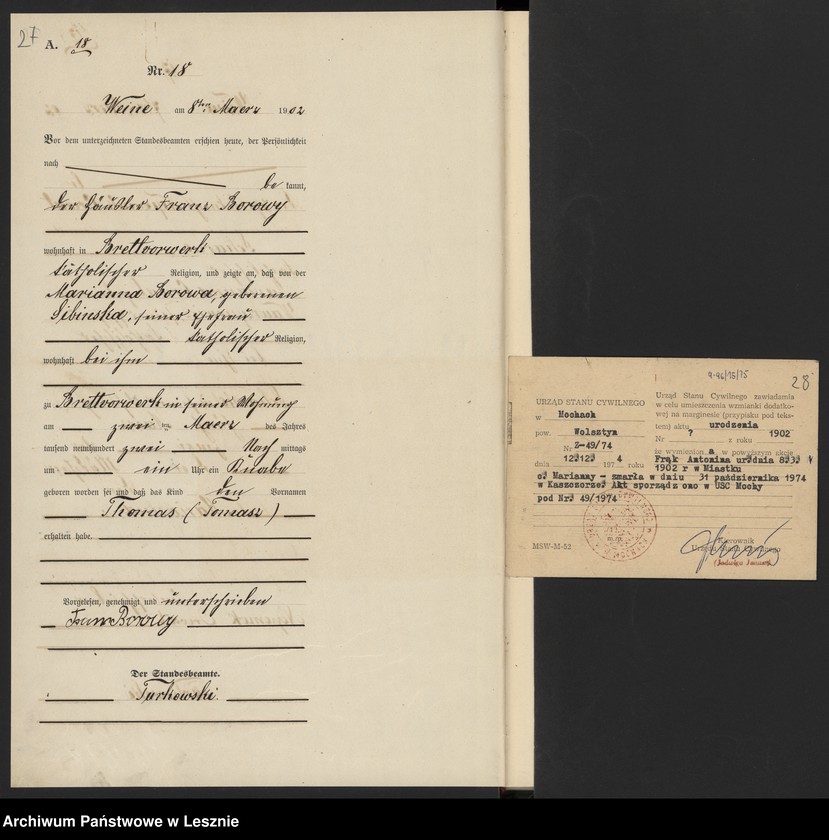 27
A. 18
Nr. 18
Weine am 8ten Maerz 1902
Vor dem unterzeichneten Standesbeamten erschien heute, der Persönlichkeit
nach
be kannt,
der Häusler Franz Borowy
wohnhaft in Brettvorwerk
katholischer Religion, und zeigte an, daß von der
Marianna Borowa, geborenen
Sibinska, seiner Ehefrau
katholischer Religion,
wohnhaft bei ihm
zu Brettvorwerk in seiner Wohnung
am zwei ten Maerz des Jahres
tausend neunhundert zwei Nach mittags
um ein Uhr ein Knabe
geboren worden sei und daß das Kind den Vornamen
Thomas (Tomasz)
erhalten habe.
Vorgelesen, genehmigt und unterschrieben
Der Standesbeamte.
Turkowski.
28
URZĄD STANU CYWILNEGO
w Mochach
pow. Wolsztyn
Nr Z-49/74
dnia 197 4 roku
MSW-M-52
Urząd Stanu Cywilnego zawiadamia
w celu umieszczenia wzmianki dodatko-
wej na marginesie (przypisku pod teks-
tem) aktu urodzenia
Nr ? z roku 1902
że wymieniona w powyższym akcie
Frąk Antonina
1902 r w Miastku
c. Marianny - zmarła w dniu 31 października 1974
w Kaszczorze. Akt sporządzono w USC Mochy
pod Nr 49/1974
Kierownik
Urzędu Stanu Cywilnego
Archiwum Państwowe w Lesznie